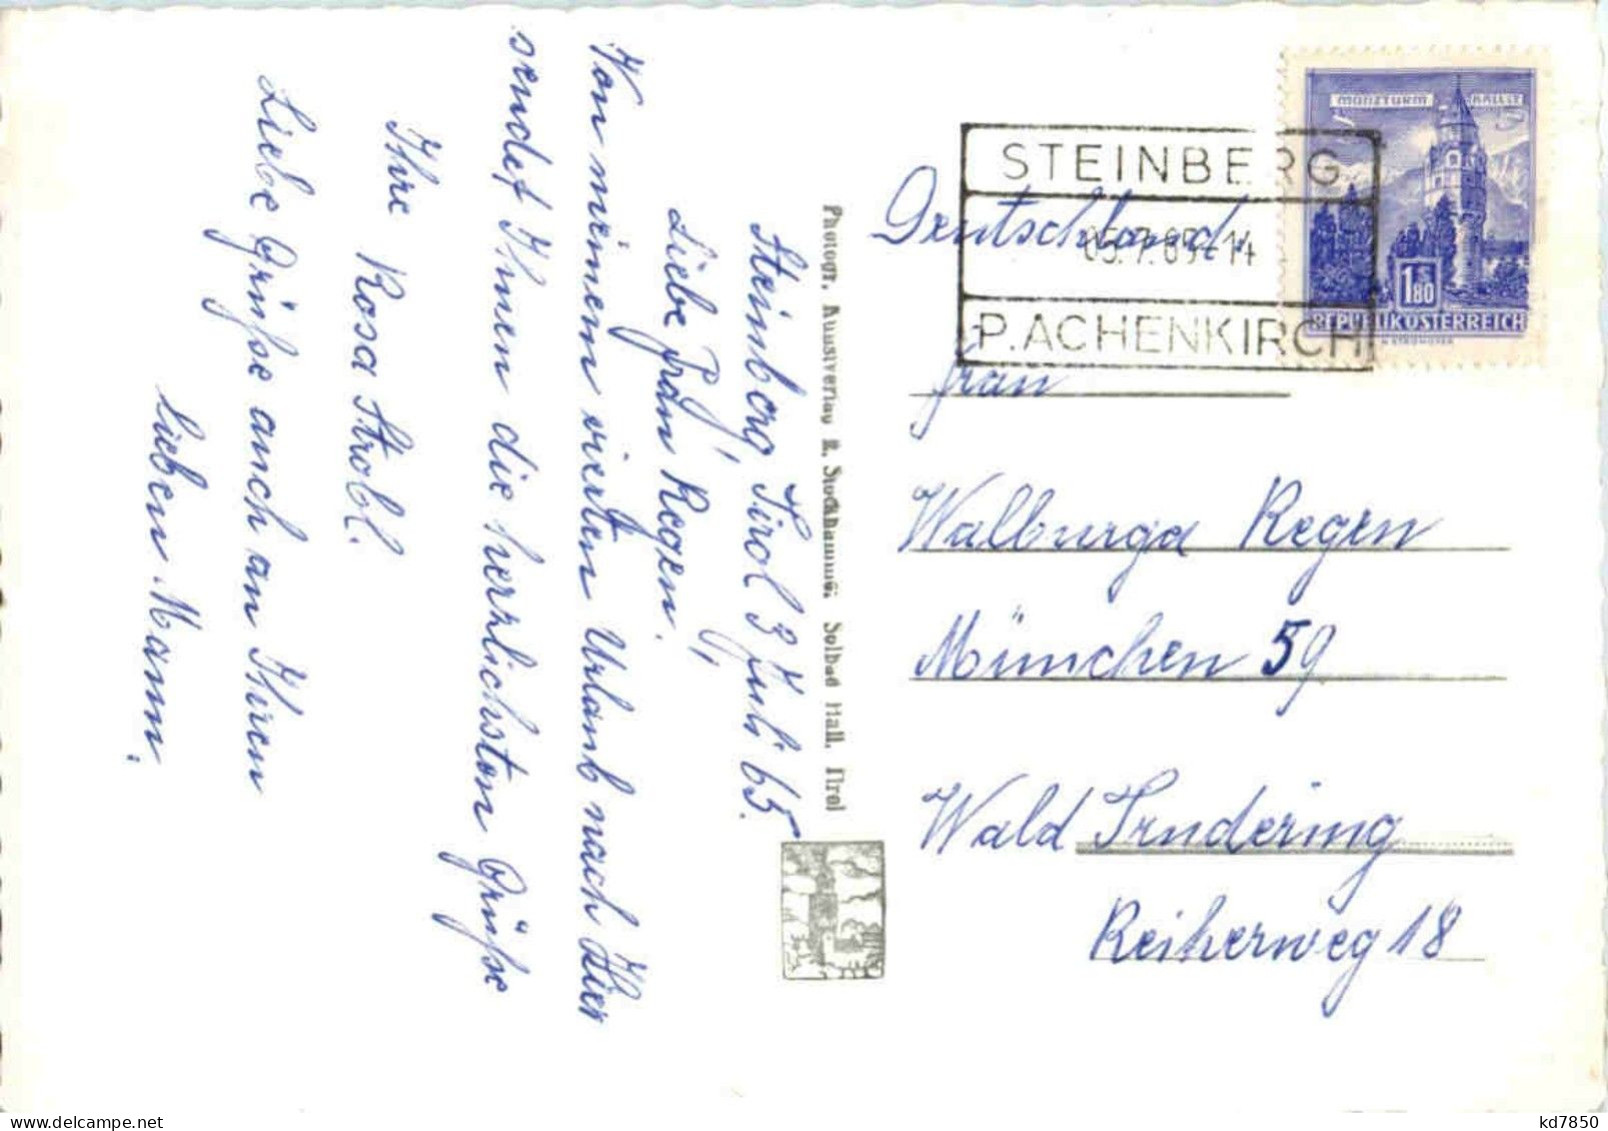 Steinberg, Tirol 3 Juli 65.
Liebe Frau Regen!
Von meinem vierten Urlaub nach Hier
sendet Ihnen die herzlichsten Grüße
Ihre Rosa Strobl.
Liebe Grüße auch an Ihren
lieben Mann.
Photogr. Kunstverlag R. Stockhammer, Solbad Hall, Tirol
MÜNZTURM HALL I.T.
1.80
REPUBLIK ÖSTERREICH
STEINBERG
05.7.65-14
P. ACHENKIRCH
Deutschland.
Frau
Walburga Regen
München 59
Wald Trudering
Reiherweg 18
kd7850